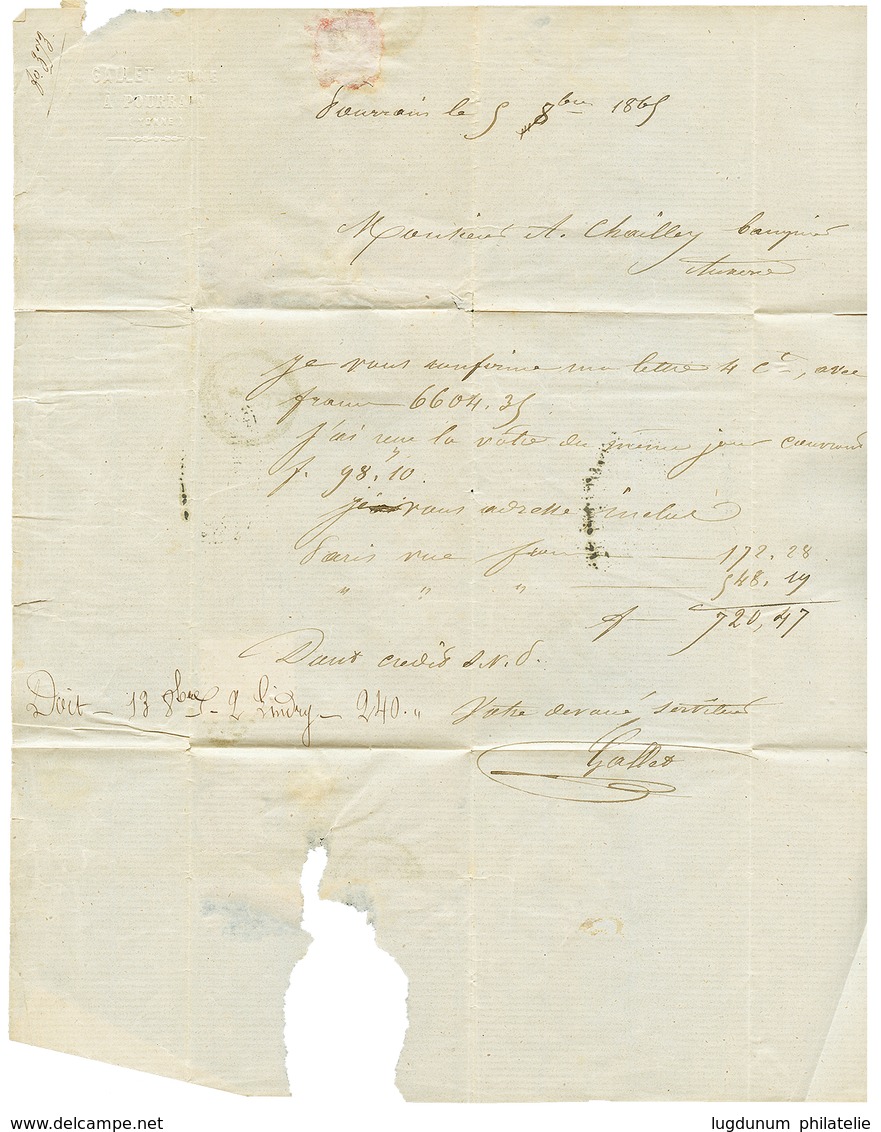 GALLET JEUNE
A POURRAIN
YONNE
Pourrain le 5 8bre 1865
Monsieur A. Chailley banquier
Auxerre
je vous confirme ma lettre 4 ct, avec
francs 6604.35
J'ai reçu la vôtre du même jour couvrant
f. 98,10.
je vous adresse inclus
Paris vue fran 172.28
" " " 548.19
f 720,47
Dont crédit s.v.p.
Doit - 13 8bre - 2 Lindry - 240. "
Votre dévoué serviteur
Gallet
www.delcampe.net
lugdunum philatelie